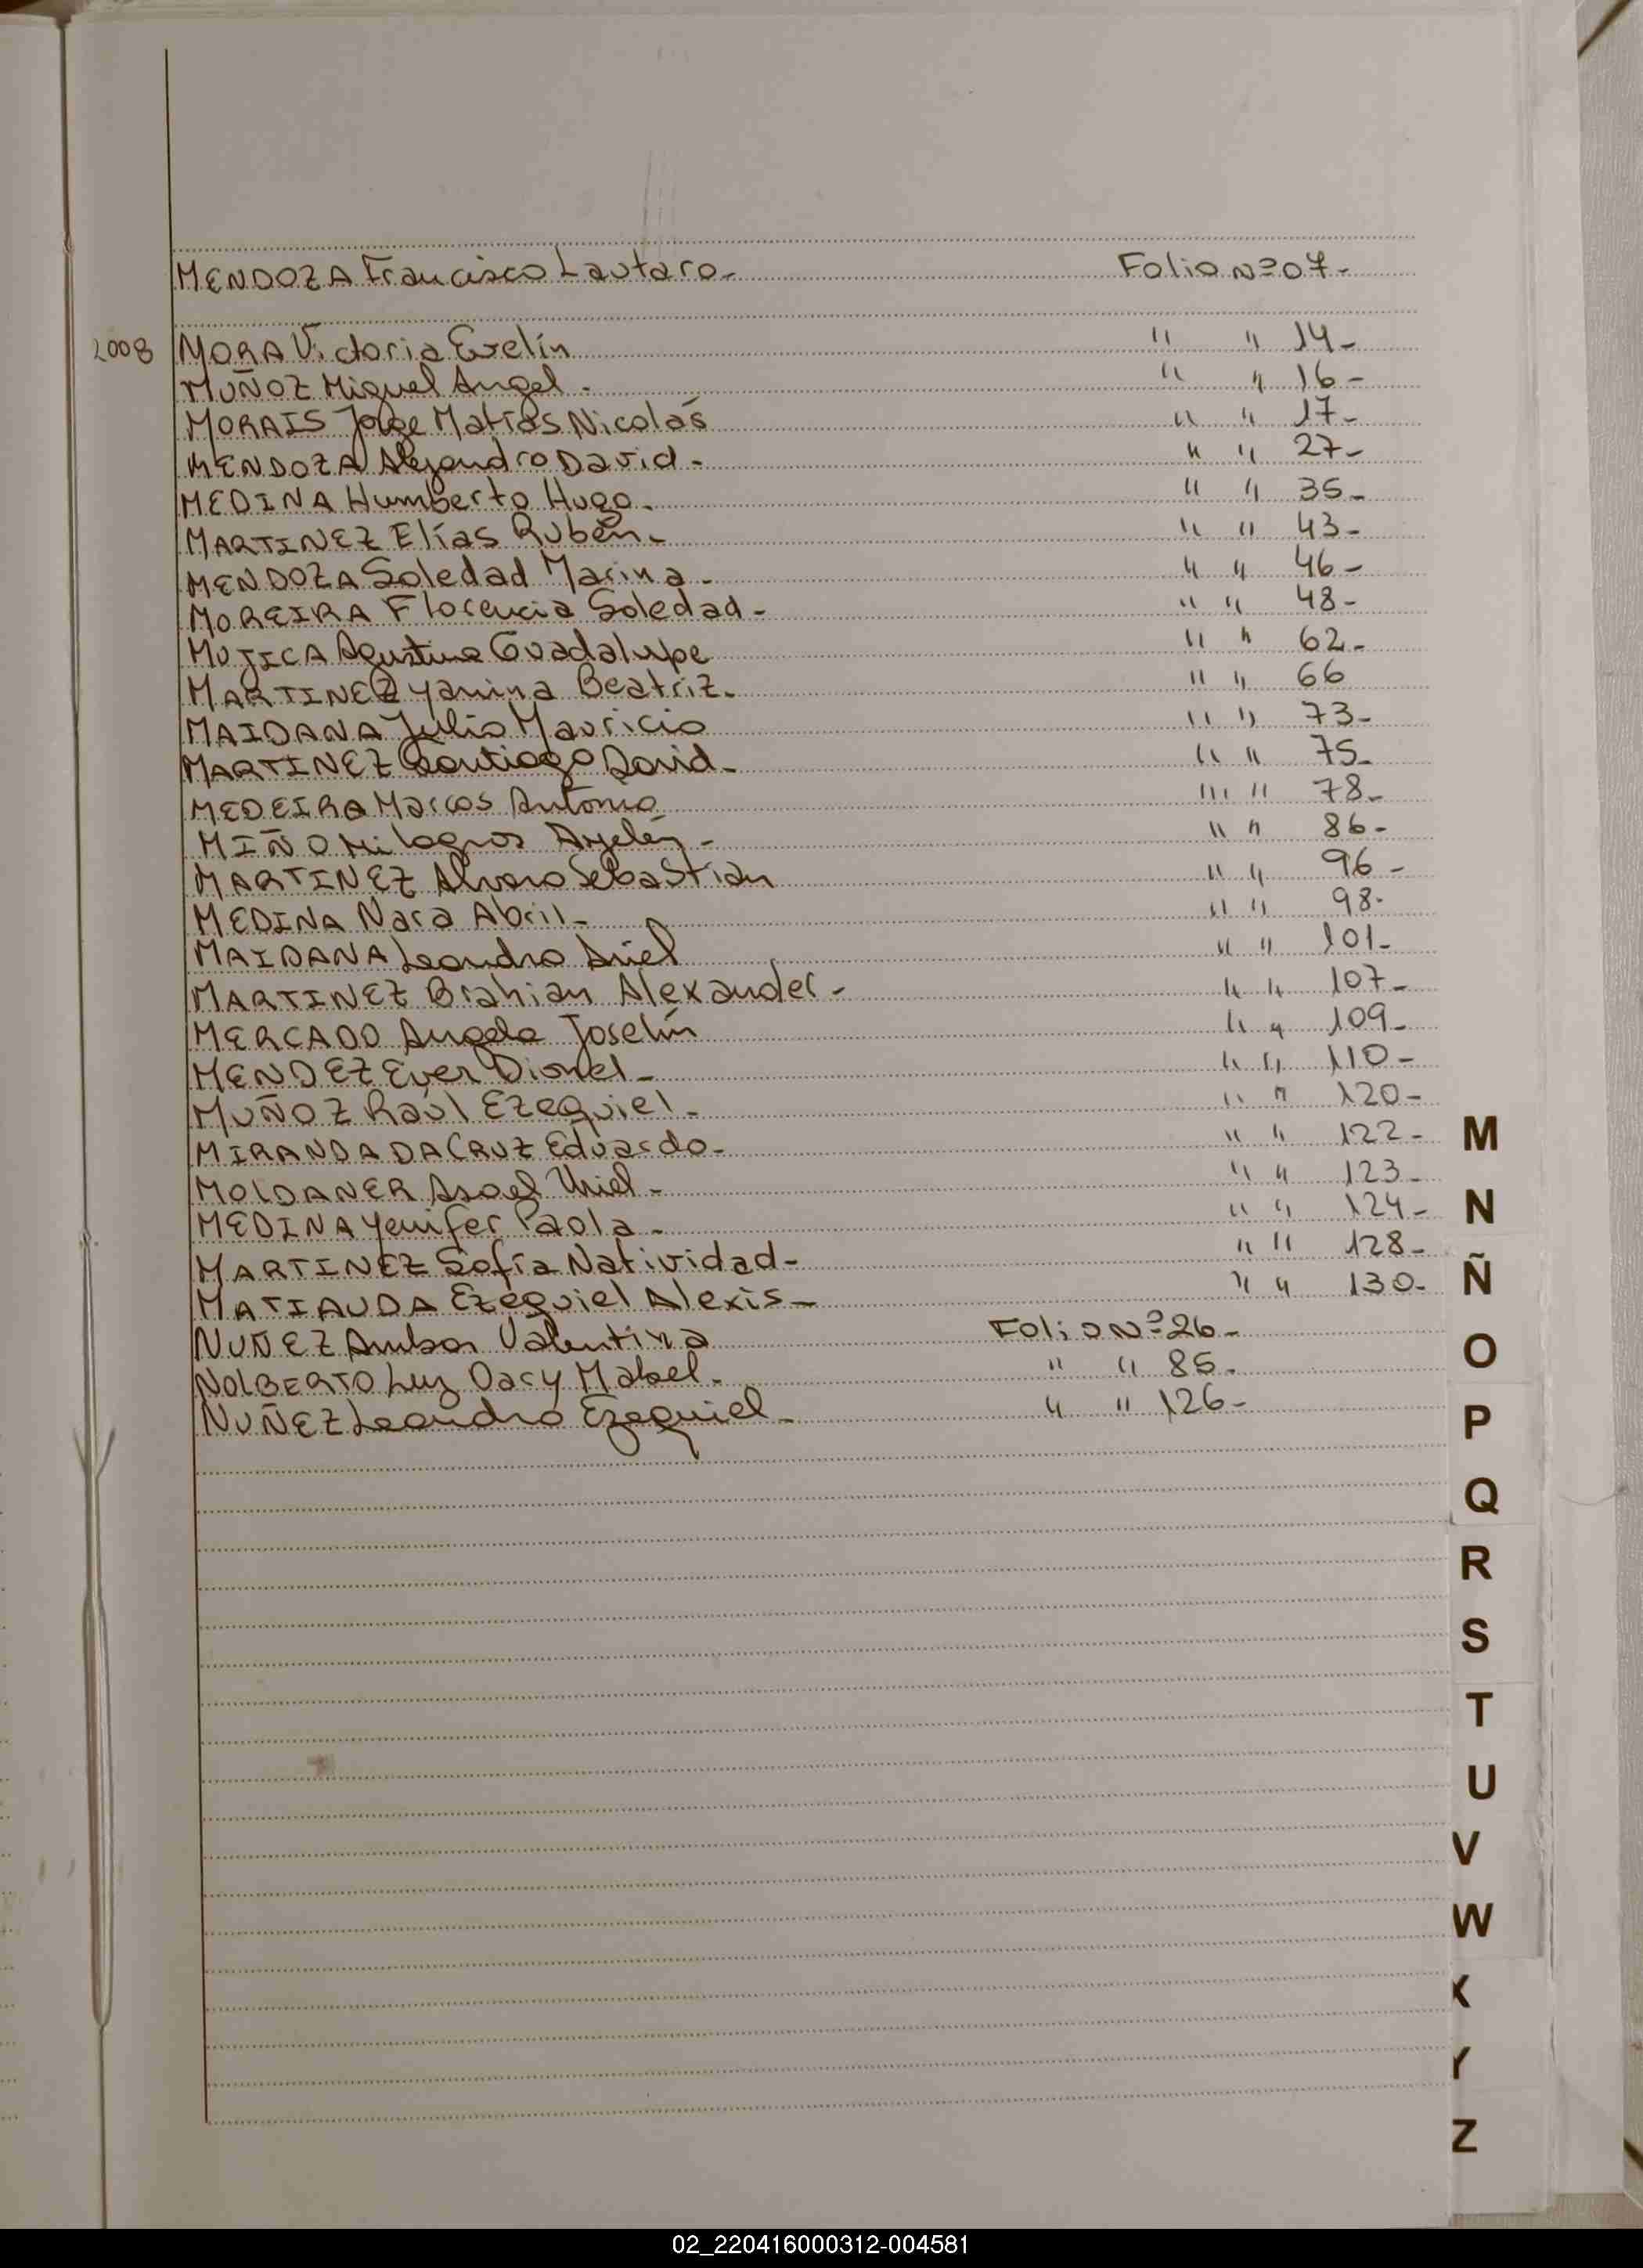 MENDOZA Francisco Lautaro- Folio Nº 07-
2008 MORA Victoria Evelín " " 14-
MUÑOZ Miguel Angel- " " 16-
MORAIS Jorge Matías Nicolás " " 17-
MENDOZA Alejandro David- " " 27-
MEDINA Humberto Hugo- " " 35-
MARTINEZ Elías Rubén- " " 43-
MENDOZA Soledad Marina- " " 46-
MOREIRA Florencia Soledad- " " 48-
MUJICA Agustina Guadalupe " " 62-
MARTINEZ Yanina Beatriz- " " 66
MAIDANA Julio Mauricio " " 73-
MARTINEZ Santiago David- " " 75-
MEDEIRA Marcos Antonio " " 78-
MIÑO Milagros Ayelén- " " 86-
MARTINEZ Alvaro Sebastian " " 96-
MEDINA Nara Abril- " " 98-
MAIDANA Leandro Ariel " " 101-
MARTINEZ Brahian Alexander- " " 107-
MERCADO Angela Joselín " " 109-
MENDEZ Ever Dionel- " " 110-
MUÑOZ Raúl Ezequiel- " " 120-
MIRANDA DA CRUZ Eduardo- " " 122-
MOLDANER Asael Uriel- " " 123-
MEDINA Yenifer Paola- " " 124-
MARTINEZ Sofía Natividad- " " 128-
MATIAUDA Ezequiel Alexis- " " 130-
NUÑEZ Ambar Valentina Folio Nº 26-
NOLBERTO Luz Dacy Mabel- " " 85-
NUÑEZ Leandro Ezequiel- " " 126-
M
N
Ñ
O
P
Q
R
S
T
U
V
W
X
Y
Z
02_220416000312-004581